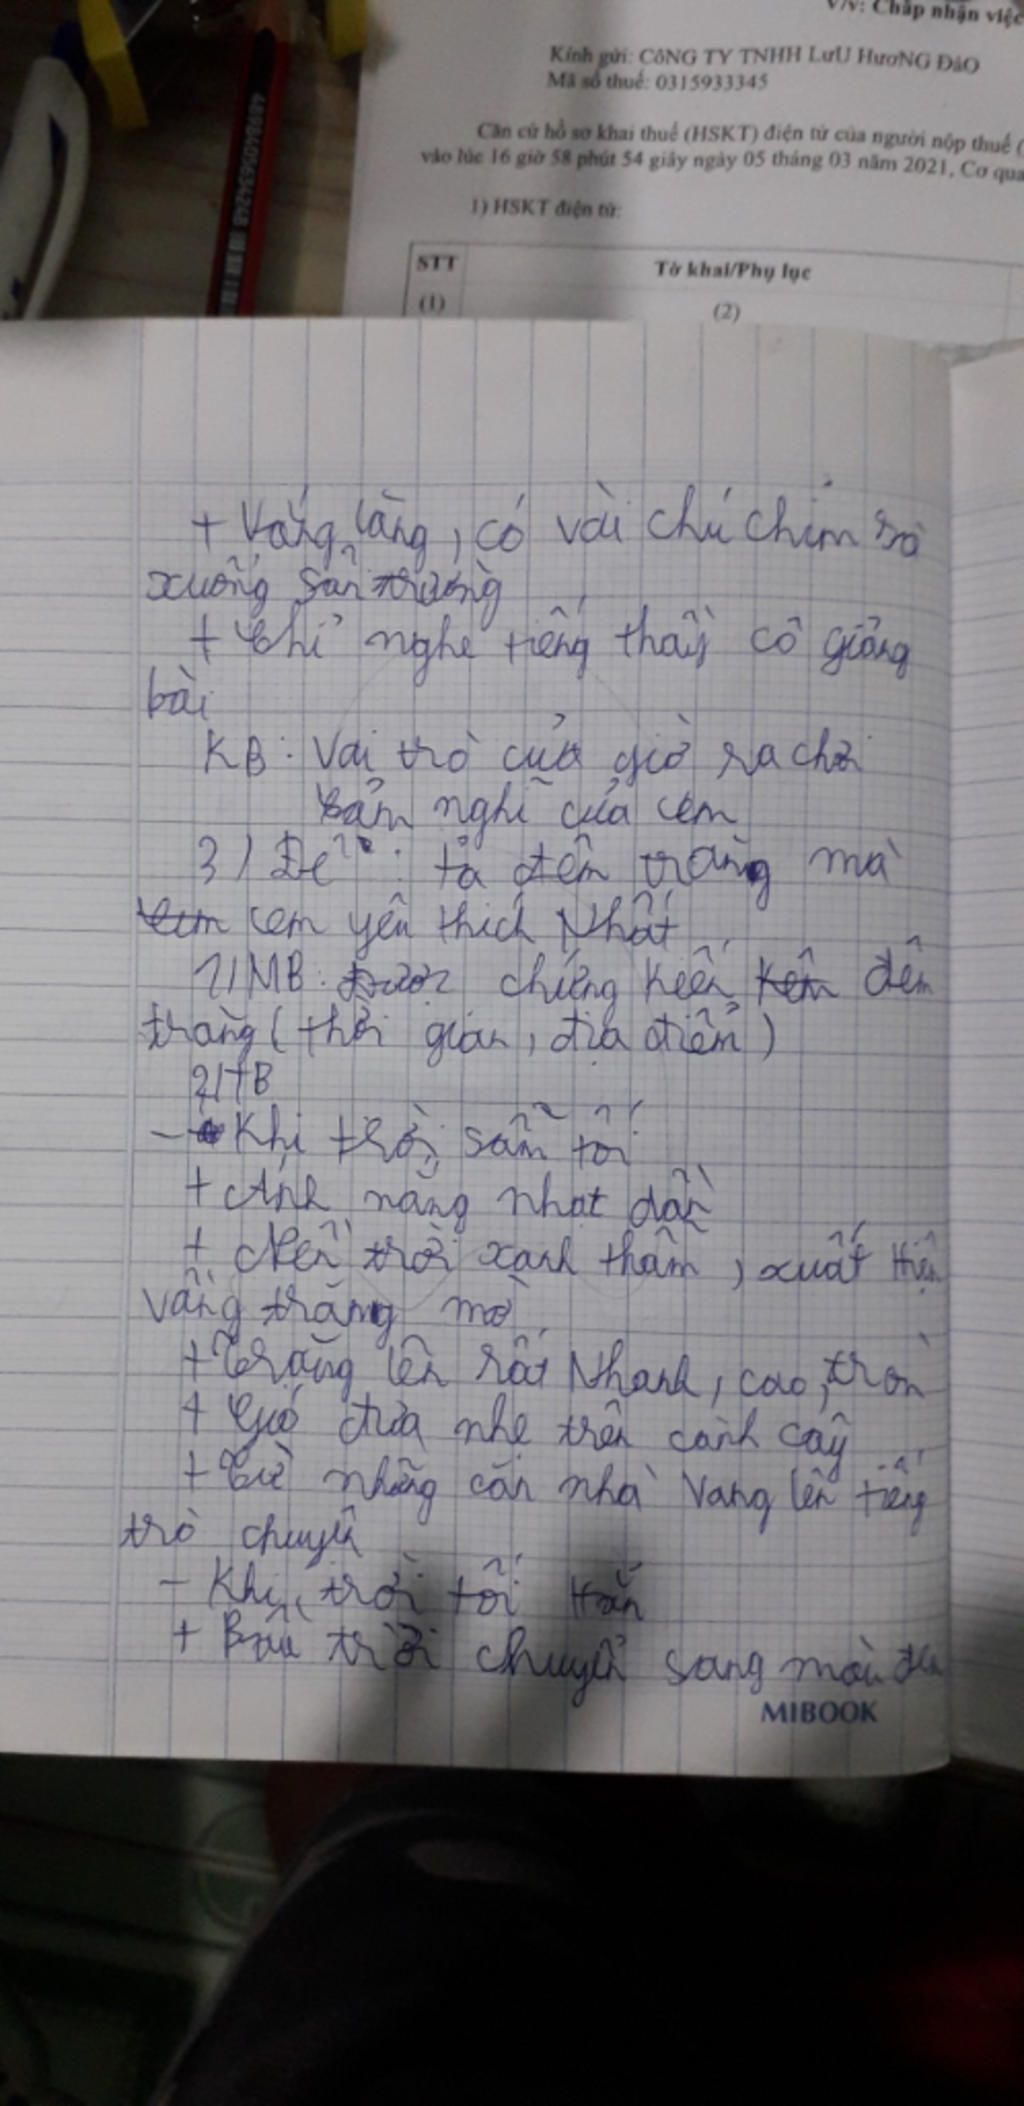 V/v: Chấp nhận việc
Kính gửi: CôNG TY TNHH LưU HươNG ĐàO
Mã số thuế: 0315933345
Căn cứ hồ sơ khai thuế (HSKT) điện tử của người nộp thuế (
vào lúc 16 giờ 58 phút 54 giây ngày 05 tháng 03 năm 2021, Cơ qua
1) HSKT điện tử:
STT Tờ khai/Phụ lục
(1) (2)
+ Vắng lặng, có vài chú chim sà
xuống sân trường
+ Chỉ nghe tiếng thầy cô giảng
bài
KB: Vai trò của giờ ra chơi
cảm nghĩ của em
3) Đề: tả đêm trăng mà
em yêu thích Nhất
1) MB: Được chứng kiến đêm
trăng (thời gian, địa điểm)
2) TB
- Khi trời sẩm tối
+ Ánh nắng nhạt dần
+ Nền trời xanh thẫm, xuất hiện
vầng trăng mờ
+ Trăng lên rất Nhanh, cao, tròn
+ Gió đưa nhẹ trên cành cây
+ Từ những căn nhà vang lên tiếng
trò chuyện
- Khi trời tối hẳn
+ Bầu trời chuyển sang màu đen
MIBOOK